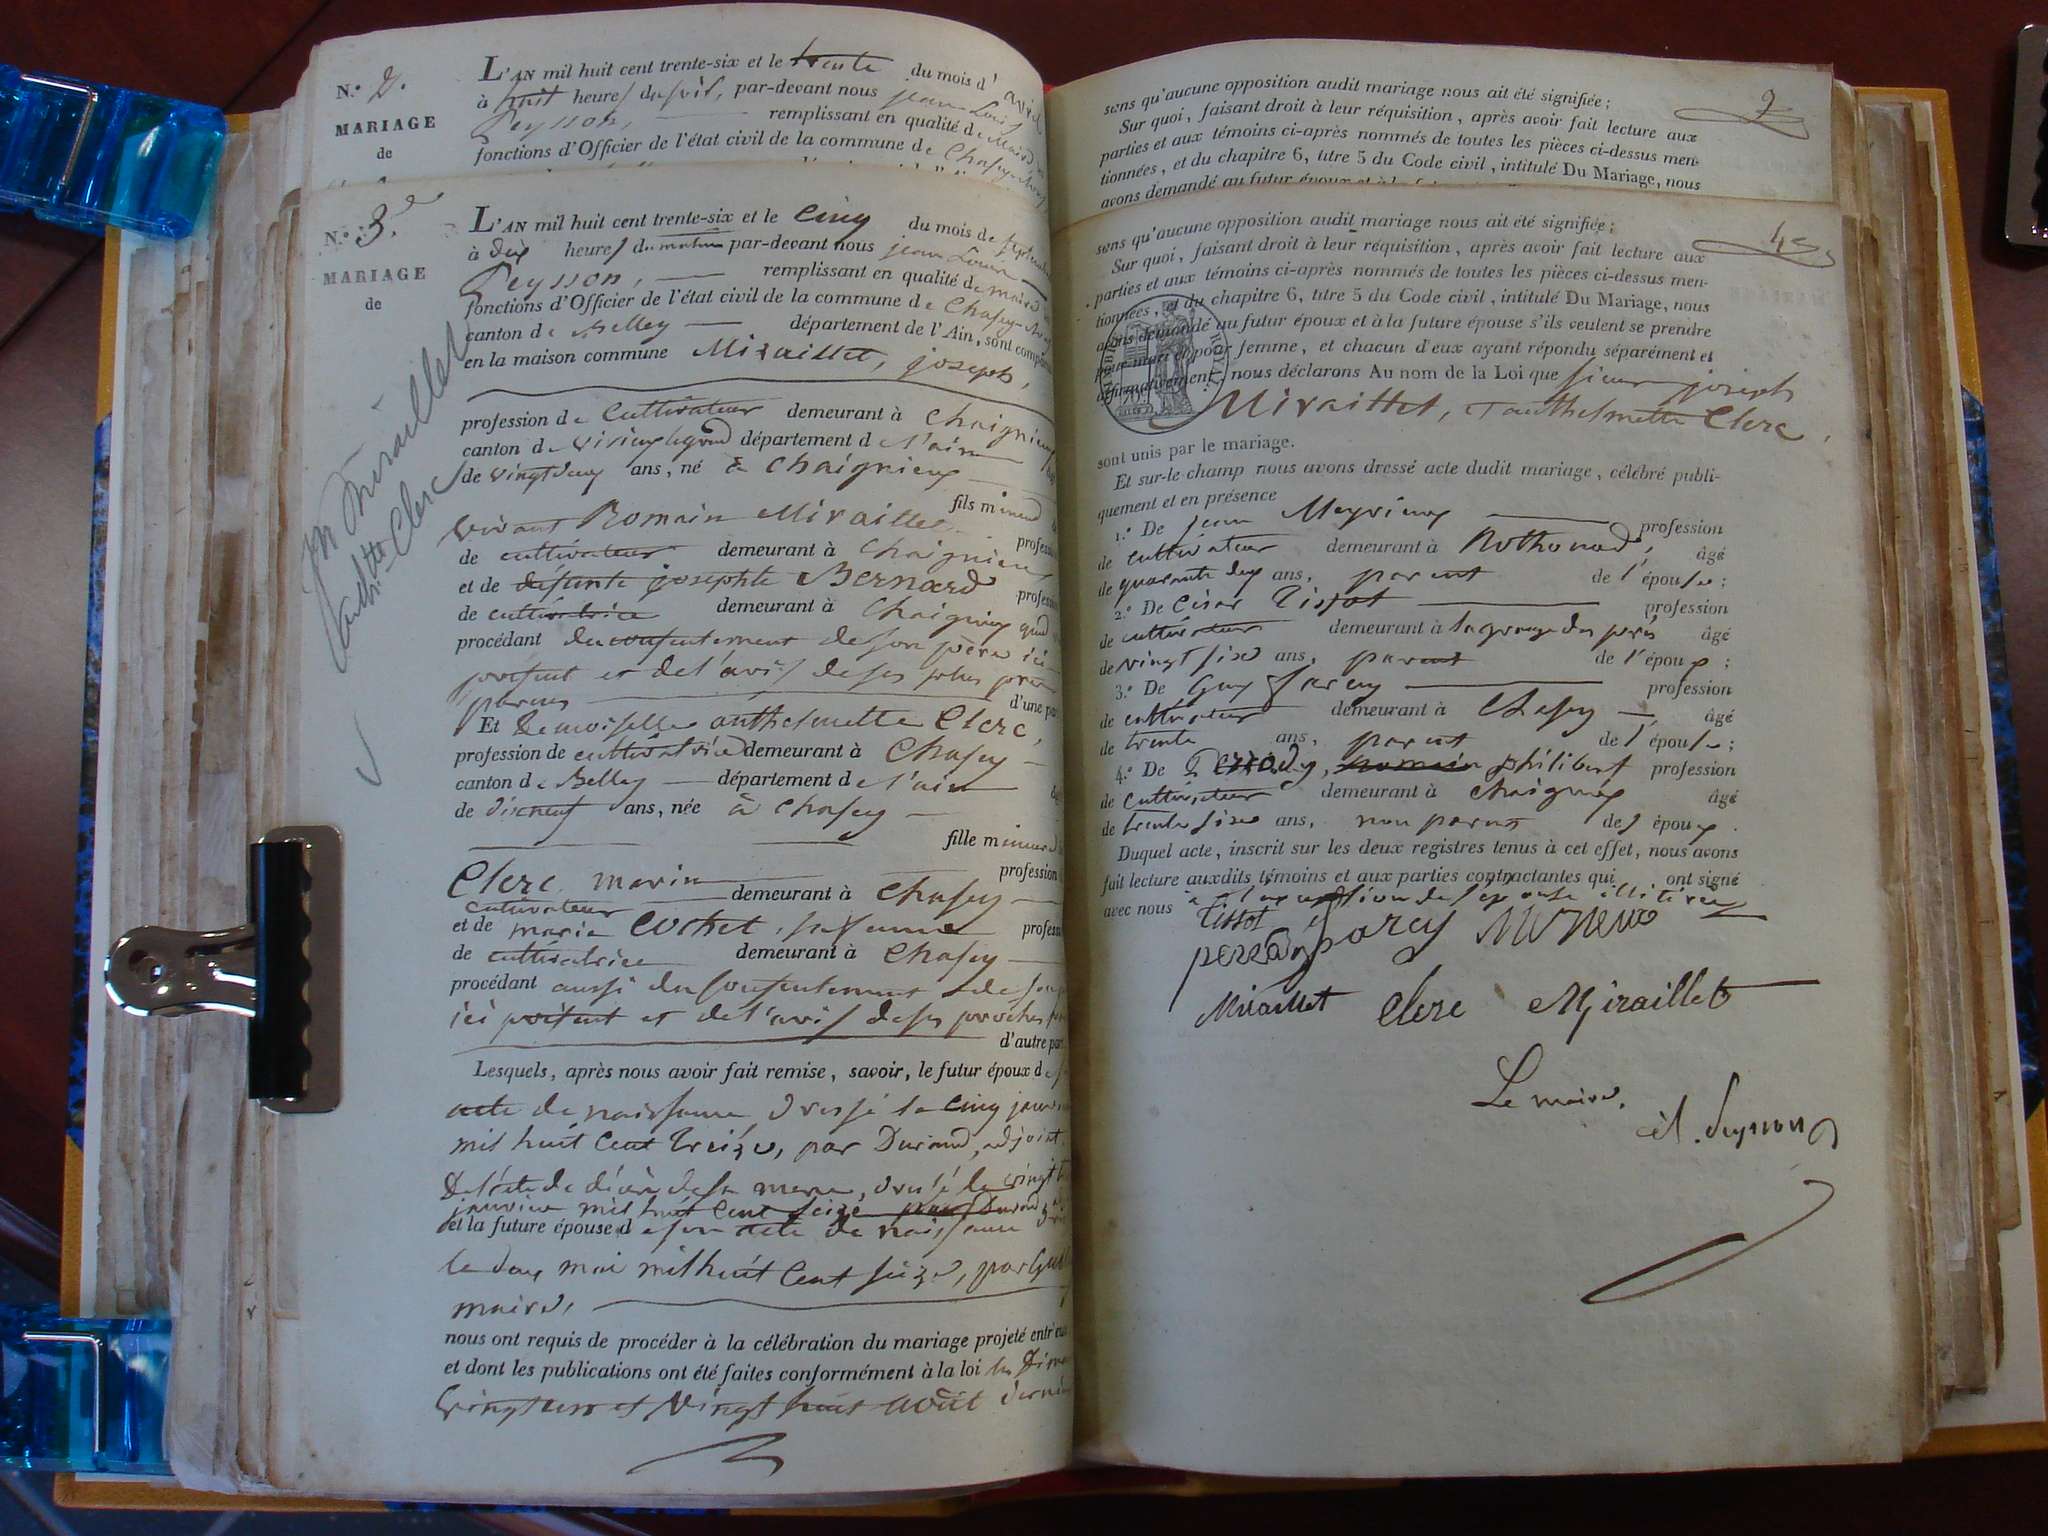 N.° 2.
MARIAGE
de
L'AN mil huit cent trente-six et le trente du mois d'avril
à huit heures du soir, par-devant nous jean Louis
Peysson, remplissant en qualité de Maire
fonctions d'Officier de l'état civil de la commune de Chasey
N.° 3.e
MARIAGE
de
M Miraillet
Clerc
L'AN mil huit cent trente-six et le cinq du mois de septembre
à dix heures du matin par-devant nous jean Louis
Peysson, remplissant en qualité de maire
fonctions d'Officier de l'état civil de la commune de Chasey
canton de Belley département de l'Ain, sont
en la maison commune Miraillet, joseph,
profession de Cultivateur demeurant à Chaignieux
canton de virieu legrand département de l'ain
de vingt deux ans, né à Chaignieux
fils mineur
vivant Romain Miraillet
de cultivateur demeurant à Chaignieux
et de défunte josephte Bernard
de cultivatrice demeurant à Chaignieux
procédant du consentement de son père ici
présent et de l'avis de ses plus
parens d'une
Et Demoiselle anthelmette Clerc,
profession de cultivatrice demeurant à Chasey
canton de Belley département de l'ain
de dixneuf ans, née à Chasey
fille mineure
Clerc marin profession
cultivateur demeurant à Chasey
et de marie Cochet, sa femme
de cultivatrice demeurant à Chasey
procédant aussi du consentement de
ici présent et de l'avis de ses proches
d'autre
Lesquels, après nous avoir fait remise, savoir, le futur époux de
acte de naissance, dressé le cinq
mil huit Cent treize, par Durand, adjoint,
De l'acte de décès de sa mere, dressé le vingt
janvier mil huit Cent seize par Durand
et la future épouse de son acte de naissance
le deux mai mil huit Cent seize, par
maire,
nous ont requis de procéder à la célébration du mariage projeté entr'eux
et dont les publications ont été faites conformément à la loi les
vingt un et Vingt huit août dernier
sens qu'aucune opposition audit mariage nous ait été signifiée;
Sur quoi, faisant droit à leur réquisition, après avoir fait lecture aux
parties et aux témoins ci-après nommés de toutes les pièces ci-dessus men-
tionnées, et du chapitre 6, titre 5 du Code civil, intitulé Du Mariage, nous
avons demandé au futur époux et à la
2
sens qu'aucune opposition audit mariage nous ait été signifiée;
Sur quoi, faisant droit à leur réquisition, après avoir fait lecture aux
parties et aux témoins ci-après nommés de toutes les pièces ci-dessus men-
tionnées, et du chapitre 6, titre 5 du Code civil, intitulé Du Mariage, nous
avons demandé au futur époux et à la future épouse s'ils veulent se prendre
pour mari et pour femme, et chacun d'eux ayant répondu séparément et
affirmativement, nous déclarons Au nom de la Loi que sieur joseph
Miraillet, et anthelmette Clerc,
sont unis par le mariage.
Et sur-le champ nous avons dressé acte dudit mariage, célébré publi-
quement et en présence
1.° De jean Meyrieux profession
de cultivateur demeurant à Rothonod, âgé
de quarante deux ans, parent de l'épouse;
2.° De César Tissot profession
de cultivateur demeurant à lagrange des prés âgé
de vingt six ans, parent de l'époux;
3.° De Guy Jarcey profession
de cultivateur demeurant à Chasey âgé
de trente ans, parent de l'épouse;
4.° De Perrody, philibert profession
de cultivateur demeurant à Chaignieux âgé
de trente six ans, non parent des époux.
Duquel acte, inscrit sur les deux registres tenus à cet effet, nous avons
fait lecture auxdits témoins et aux parties contractantes qui ont signé
avec nous à l'exception de l'épouse illitérée
Tissot
Miraillet Clerc Miraillet
Le maire,